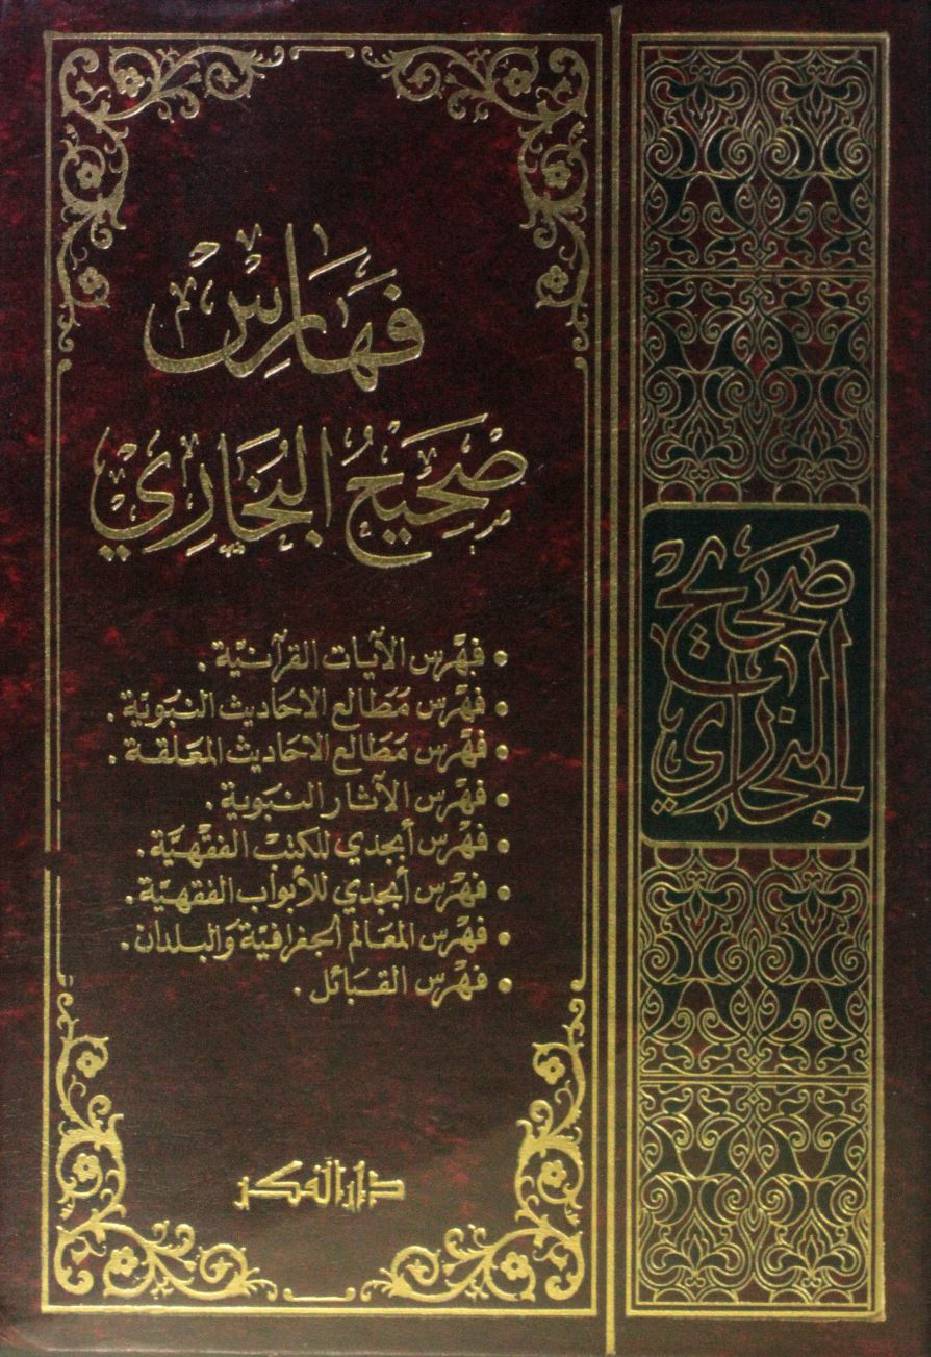 فهارس
صحيح البخاري
• فهرس الآيات القرآنية.
• فهرس مطالع الاحاديث النبوية.
• فهرس مطالع الاحاديث المعلقة.
• فهرس الآثار النبوية.
• فهرس أبجدي للكتب الفقهية.
• فهرس أبجدي للأبواب الفقهية.
• فهرس المعالم الجغرافية والبلدان.
• فهرس القبائل.
دار الفكر
صحيح
البخاري